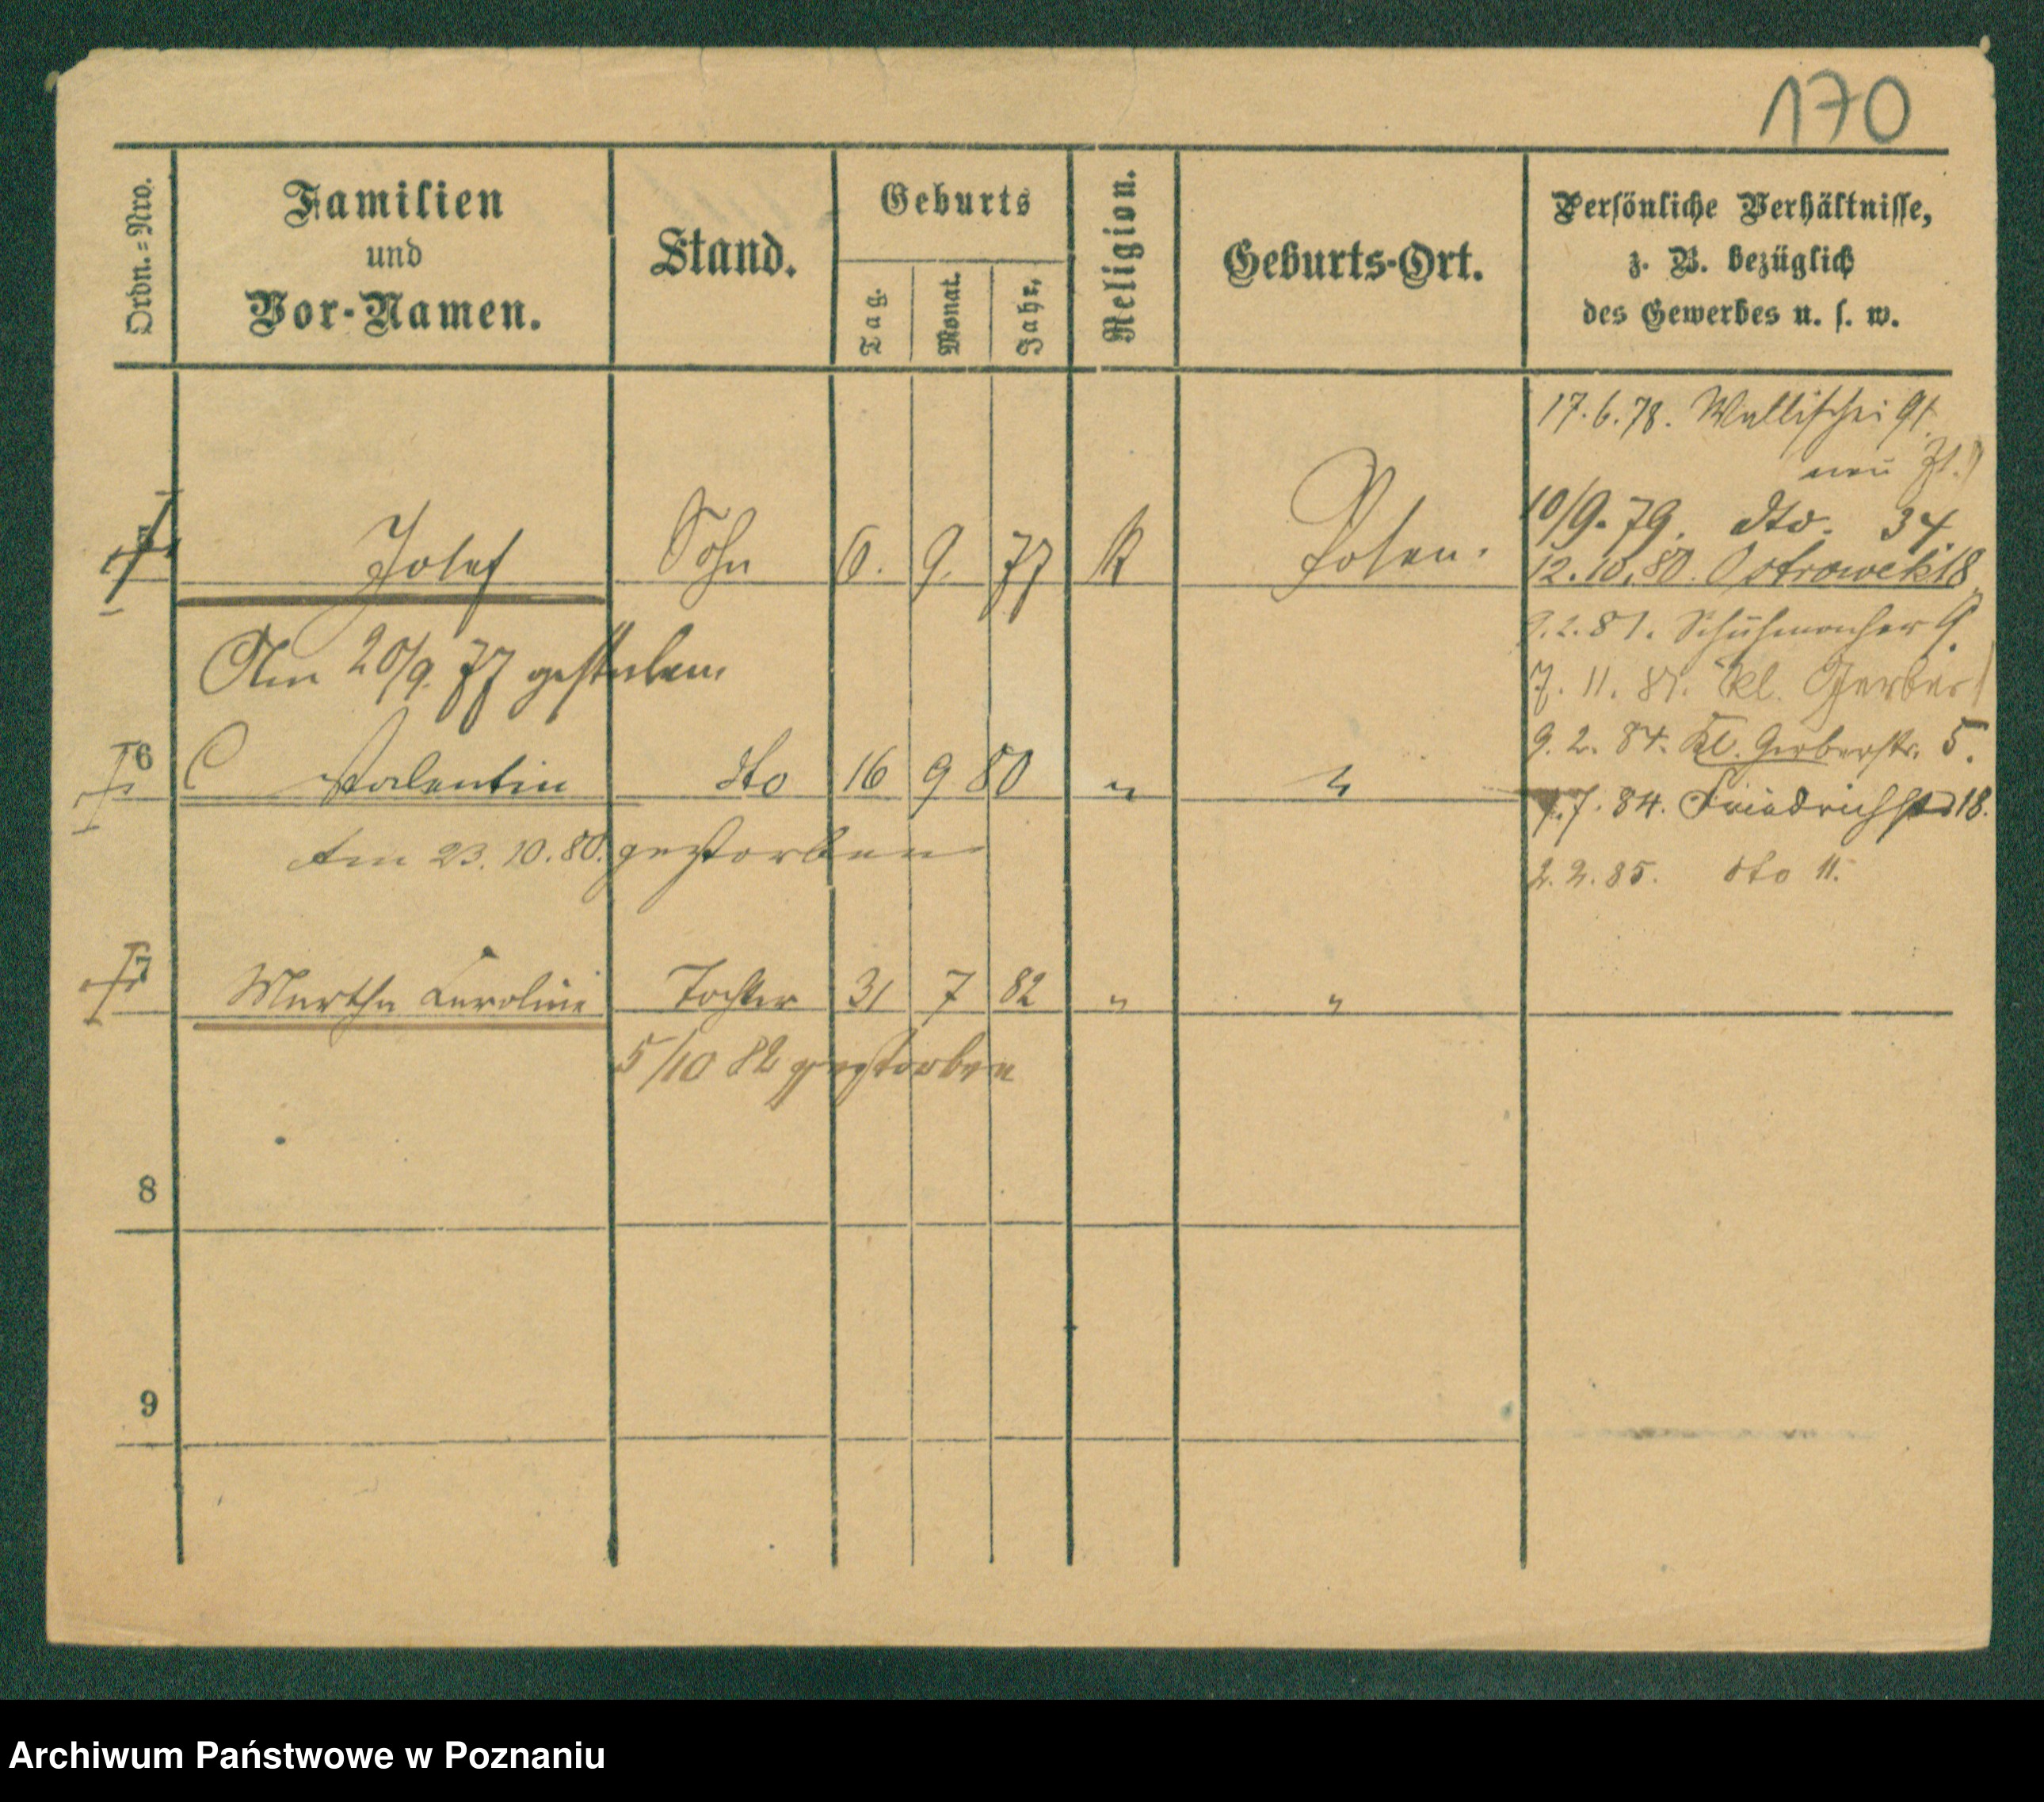 170
Ordn.=Nro.
Familien
und
Vor-Namen.
Stand.
Geburts
Tag.
Monat.
Jahr.
Religion.
Geburts-Ort.
Persönliche Verhältnisse,
z. B. bezüglich
des Gewerbes u. s. w.
17.6.78. Wallischei 91
neu
10/9.79. dto. 34.
12.10.80. Ostrowek 18
Josef Sohn 6. 9. 77 K Posen.
Am 20/9. 77 gestorben.
2.81. Schuhmacher 9.
7.11. kl. Gerber
9.2.84. Kl. Gerberstr. 5.
6 Valentin dto 16 9 80 " "
7.84. Friedrichstr 18.
Am 23.10.80. gestorben
2.2.85. dto 11.
7 Martha Caroline Tochter 31 7 82 " "
5/10 82 gestorben
8
9
Archiwum Państwowe w Poznaniu